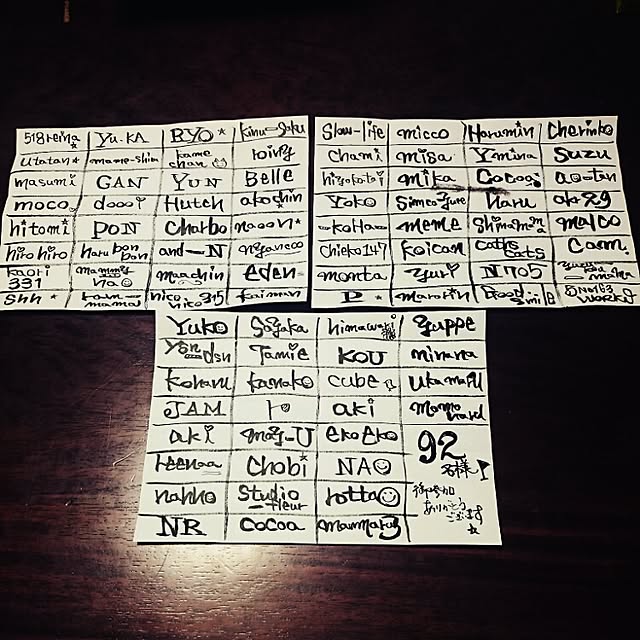 518reina★ Yu.KA RYO★ kinu-Goku
Utatan★ mame-shim kame chan roiny
masumi GAN YUN Belle
moco doooi Hutch akochin
hitomi PON Charbo naoon★
hirohiro haru bon bon and-N nyancoo
kaori 331 mammy's nao maachin eden
shh★ mama nico nico 315 kaiman
Slow-life micco Harumin Cherinko
Chami misa Ymina Suzu
hirokotoi mika Cocoa ao-tan
YOKO haru ako29
koHa meme Shimamima malco
Chieko147 koican caths cats Cam.
monta yuri N705
P★ maronin WORKS
Yuko Sayaka himawari guppe
Yon dsn Tamie KOU minana
koharu kanako cube Ukamaru
JAM aki momo nard
aki may-U ekoeko 92名様!
reenaa Chobi NAO 御参加
nanno Studio fleur rotta ありがとう
NR cocoa mammaru3 ございます☆